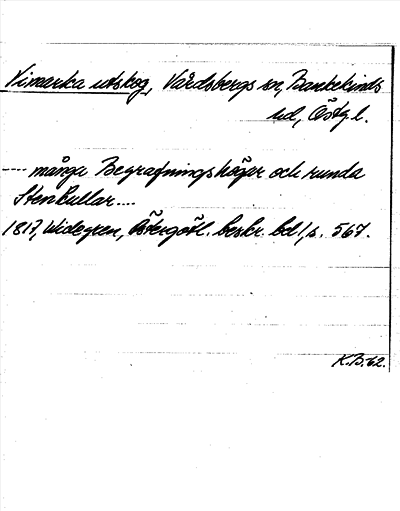 Vimarka utskog, Vårdsbergs sn, Bankekinds
hd, Östg. l.
---- många Begrafningshögar och runda
Stenkullar....
1817, Widegren, Östergötl. beskr. bd 1, s. 567.
K.B. 62.